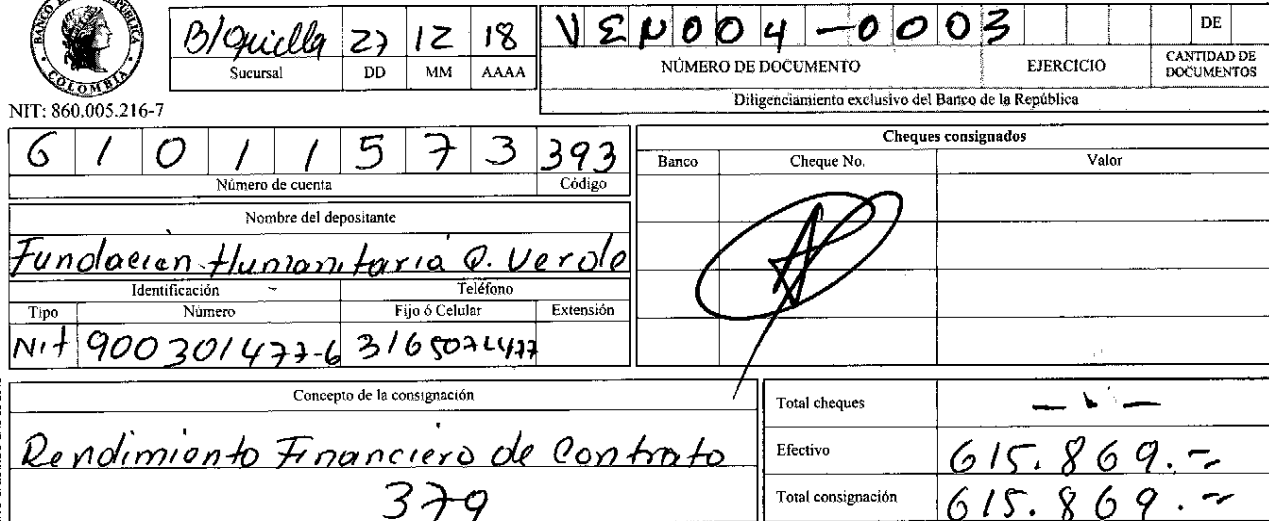 BANCO DE LA REPÚBLICA
COLOMBIA
NIT: 860.005.216-7
B/quilla 27 12 18
Sucursal DD MM AAAA
VEN004-0003 DE
NÚMERO DE DOCUMENTO EJERCICIO CANTIDAD DE DOCUMENTOS
Diligenciamiento exclusivo del Banco de la República
6 1 0 1 1 5 7 3 393
Número de cuenta Código
Nombre del depositante
Fundación Humanitaria Q. Verde
Identificación Teléfono
Tipo Número Fijo ó Celular Extensión
Nit 900301477-6
Cheques consignados
Banco Cheque No. Valor
Concepto de la consignación
Rendimiento Financiero de Contrato
379
Total cheques
Efectivo 615.869.-
Total consignación 615.869.-